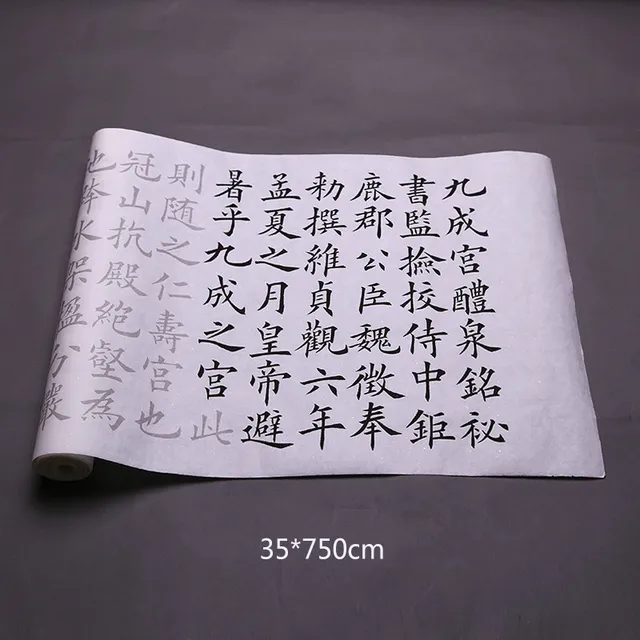 九成宮醴泉銘祕
書監撿挍侍中鉅
鹿郡公臣魏徵奉
勑撰維貞觀六年
孟夏之月皇帝避
暑乎九成之宮此
則随之仁壽宮也
冠山抗殿絕壑為
池跨水架楹分巖
35*750cm